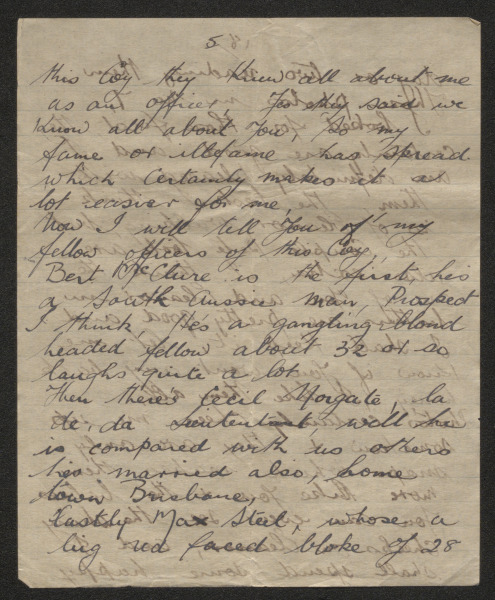 5
this Coy they knew all about me
as an officer, For they said we
know all about You, So my
fame or illfame has spread
which certainly makes it a
lot easier for me,
Now I will tell You of my
fellow officers of this Coy,
Bert McClure is the first hes
a South Aussie man, Prospect
I think, He's a gangling blond
headed fellow about 32 or so
laughs quite a lot.
Then there's Cecil Norgate, la
de, da lieutentant well he
is compared with us others
hes married also, home
town Brisbane,
Lastly Max Steel, whose a
big red faced bloke of 28